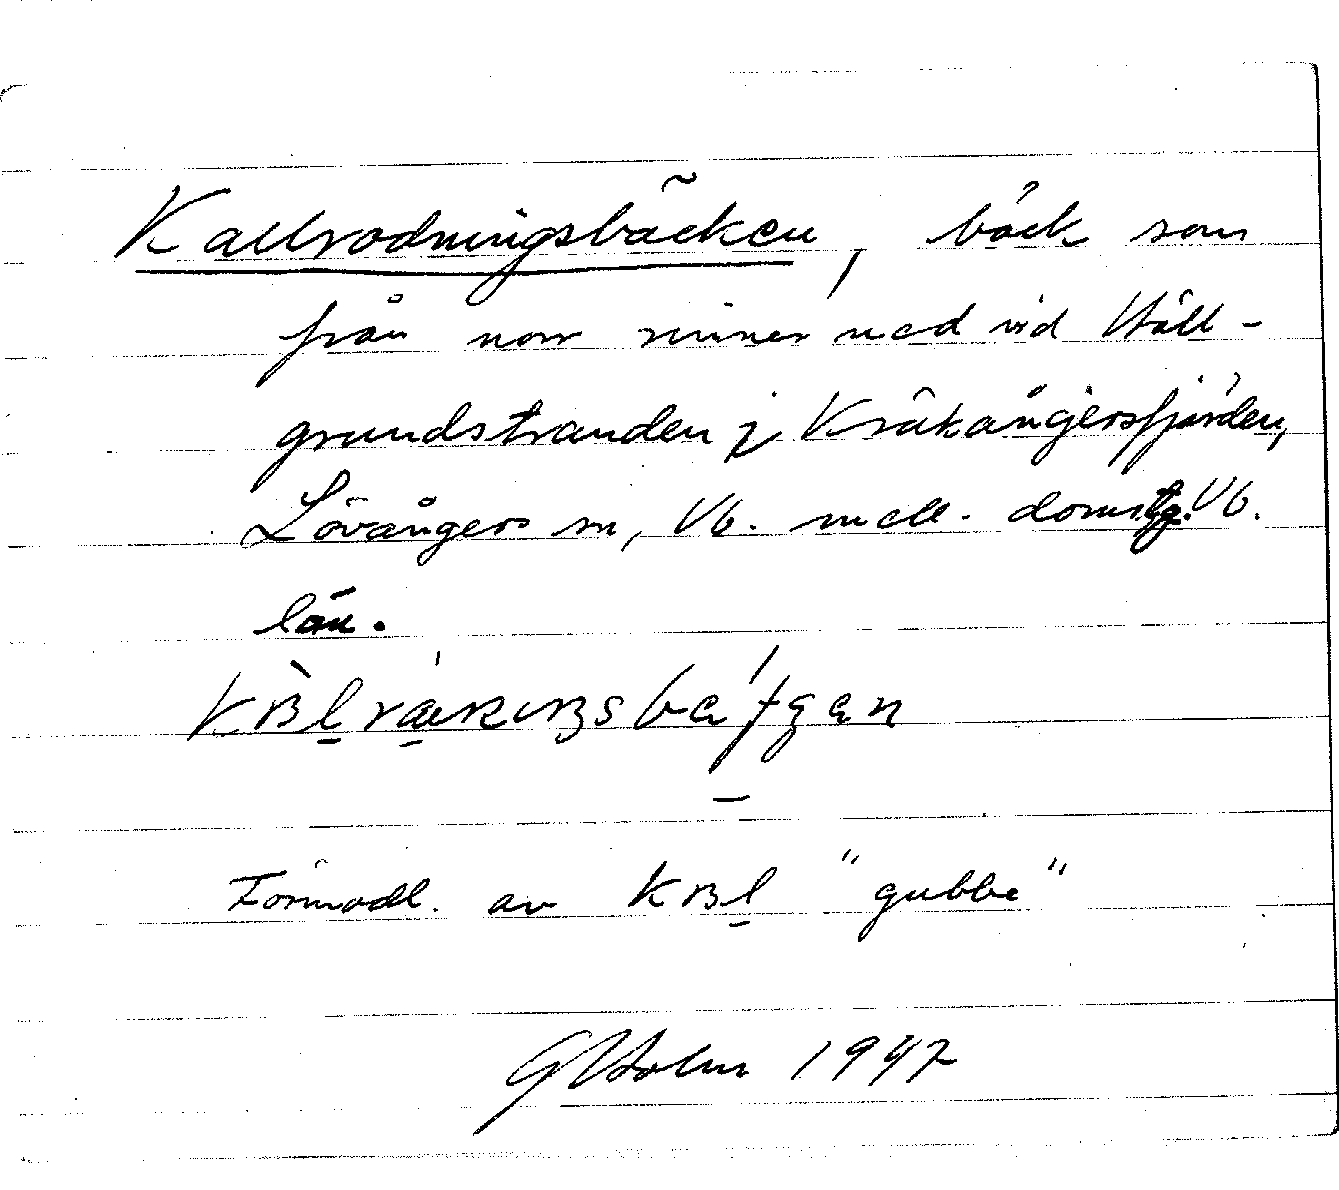 Kallrodningsbäcken, bäck som
från norr rinner ned vid Häll-
grundstranden i Kräkångersfjärden,
Lövångers sn, Vb. mell. doms. Vb.
län.
Förmodl. av "gubbe"
GHolm 1947